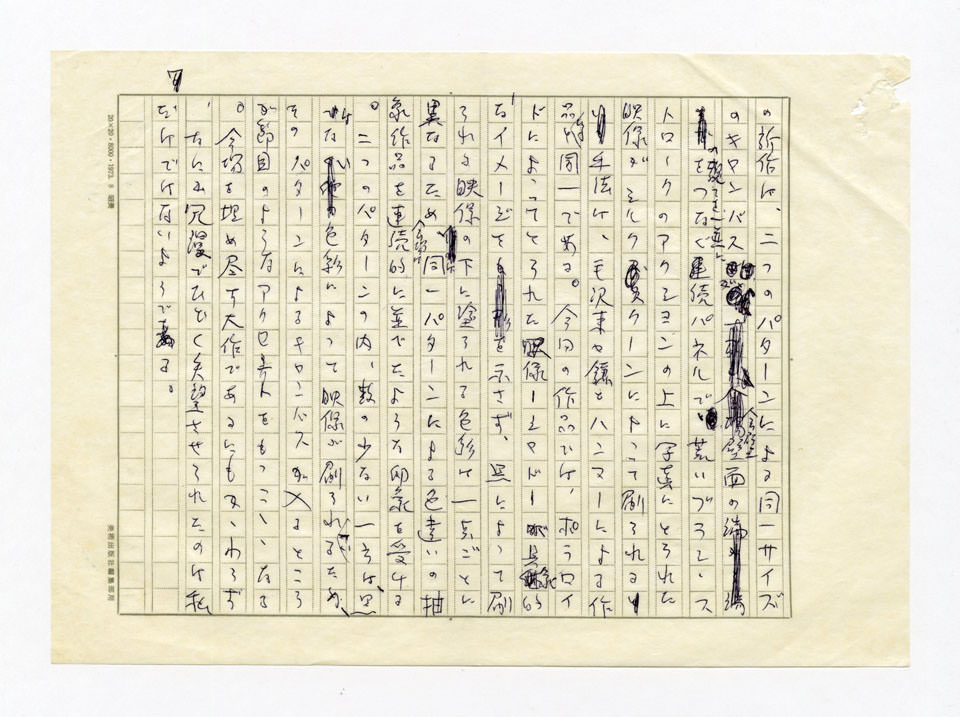 の新作は、二つのパターンによる同一サイズ
のキャンバス 会場壁面の端
の襞を並につなぐ連続パネルで、荒いブラシ・ス
トロークのアクションの上に写真にとられた
映像がシルクスクリーンによって刷られると
手法は、毛沢東や鎌とハンマーによる作
品と同一である。今回の作品では、ポラロイ
ドによってとられた映像=シャドーが具象的
なイメージを示さず、黒によって刷
られる映像の下に塗られる色彩は一点ごとに
異なるため会場は同一パターンによる色違いの抽
象作品を連続的に並べたような印象を受ける
。二つのパターンの内、数の少ない一方は、黒
でな 色彩によって映像が刷られるため、
そのパターンによるキャンバスが入るところ
が節目のようなアクセントをもっている
。会場を埋め尽す大作であるにもかかわらず
、なにか冗漫でひどく失望させられたのは私
だけではないようである。
7
20×20・8000・1973. 8 提携
美術出版社編集部用